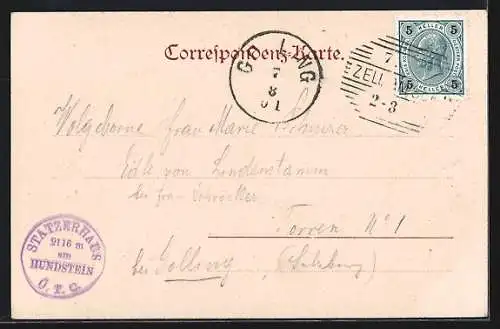 Correspondenz-Karte.
GOLLING
7
8
01
7.
ZELL
2-3
5 HELLER 5
5 HELLER 5
Wolgeborne Frau Marie
Edle von Lindenstamm
bei Frau
Torren No 1
bei Golling (Salzburg)
STATZERHAUS
2116 m
am
HUNDSTEIN
Ö. T. C.